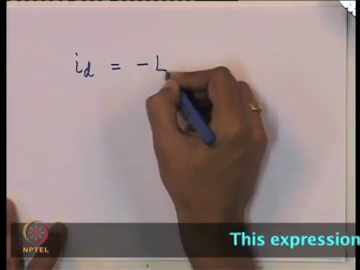 i_d = - L
NPTEL
This expression